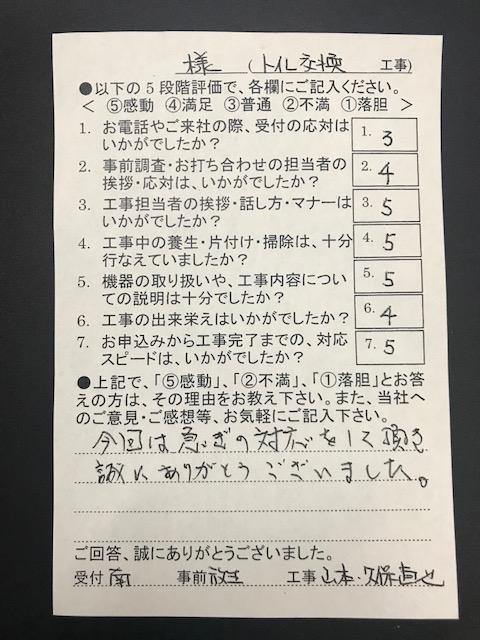 様 (トイレ交換 工事)
●以下の5段階評価で、各欄にご記入ください。
< ⑤感動 ④満足 ③普通 ②不満 ①落胆 >
1. お電話やご来社の際、受付の応対は
いかがでしたか?
1. 3
2. 事前調査・お打ち合わせの担当者の
挨拶・応対は、いかがでしたか?
2. 4
3. 工事担当者の挨拶・話し方・マナーは
いかがでしたか?
3. 5
4. 工事中の養生・片付け・掃除は、十分
行なえていましたか?
4. 5
5. 機器の取り扱いや、工事内容につい
ての説明は十分でしたか?
5. 5
6. 工事の出来栄えはいかがでしたか?
6. 4
7. お申込みから工事完了までの、対応
スピードは、いかがでしたか?
7. 5
●上記で、「⑤感動」、「②不満」、「①落胆」とお答
えの方は、その理由をお教え下さい。また、当社へ
のご意見・ご感想等、お気軽にご記入下さい。
今回は急ぎの対応をして頂き
誠にありがとうございました。
ご回答、誠にありがとうございました。
受付 南 事前 工事 山本・久保直也